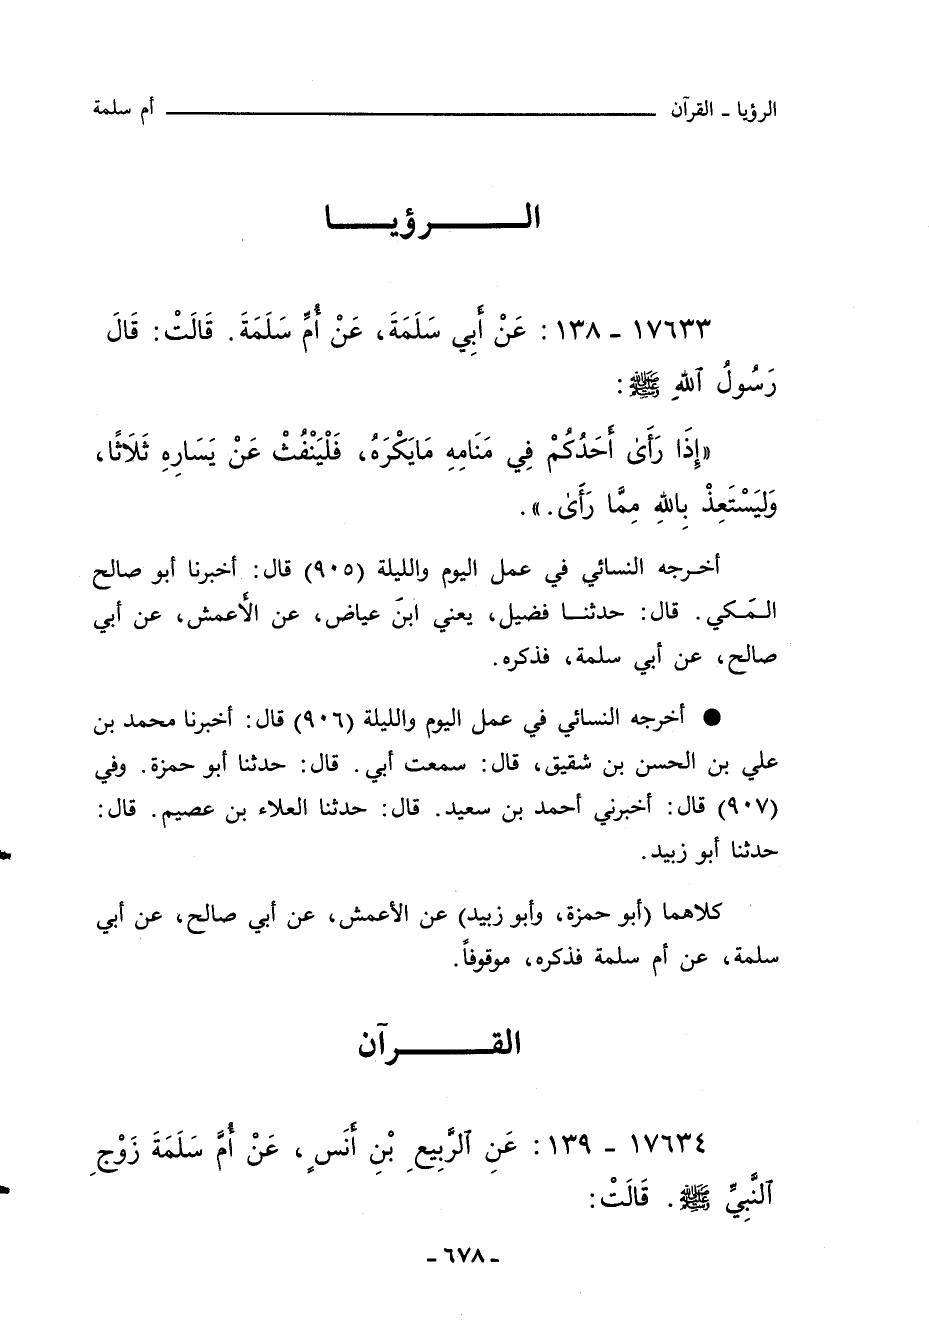 الرؤيا - القرآن ــــــــــ أم سلمة
الـــــرؤيـــــا
١٧٦٣٣ - ١٣٨ : عَنْ أَبِي سَلَمَةَ، عَنْ أُمِّ سَلَمَةَ. قَالَتْ: قَالَ
رَسُولُ ٱللهِ ﷺ:
«إِذَا رَأَىٰ أَحَدُكُمْ فِي مَنَامِهِ مَايَكْرَهُ، فَلْيَنْفُثْ عَنْ يَسَارِهِ ثَلَاثًا،
وَلْيَسْتَعِذْ بِاللهِ مِمَّا رَأَىٰ.».
أخـرجه النسائي في عمل اليوم والليلة (٩٠٥) قال: أخبرنا أبو صالح
المَكي. قال: حدثنـا فضيل، يعني ابنَ عياض، عن الأَعمش، عن أبي
صالح، عن أبي سلمة، فذكره.
● أخرجه النسائي في عمل اليوم والليلة (٩٠٦) قال: أخبرنا محمد بن
علي بن الحسن بن شقيق، قال: سمعت أبي. قال: حدثنا أبو حمزة. وفي
(٩٠٧) قال: أخبرني أحمد بن سعيد. قال: حدثنا العلاء بن عصيم. قال:
حدثنا أبو زبيد.
كلاهما (أبو حمزة، وأبو زبيد) عن الأعمش، عن أبي صالح، عن أبي
سلمة، عن أم سلمة فذكره، موقوفاً.
القـــــرآن
١٧٦٣٤ - ١٣٩ : عَنِ ٱلرَّبِيعِ بْنِ أَنَسٍ، عَنْ أُمِّ سَلَمَةَ زَوْجِ
ٱلنَّبِيِّ ﷺ. قَالَتْ:
- ٦٧٨ -